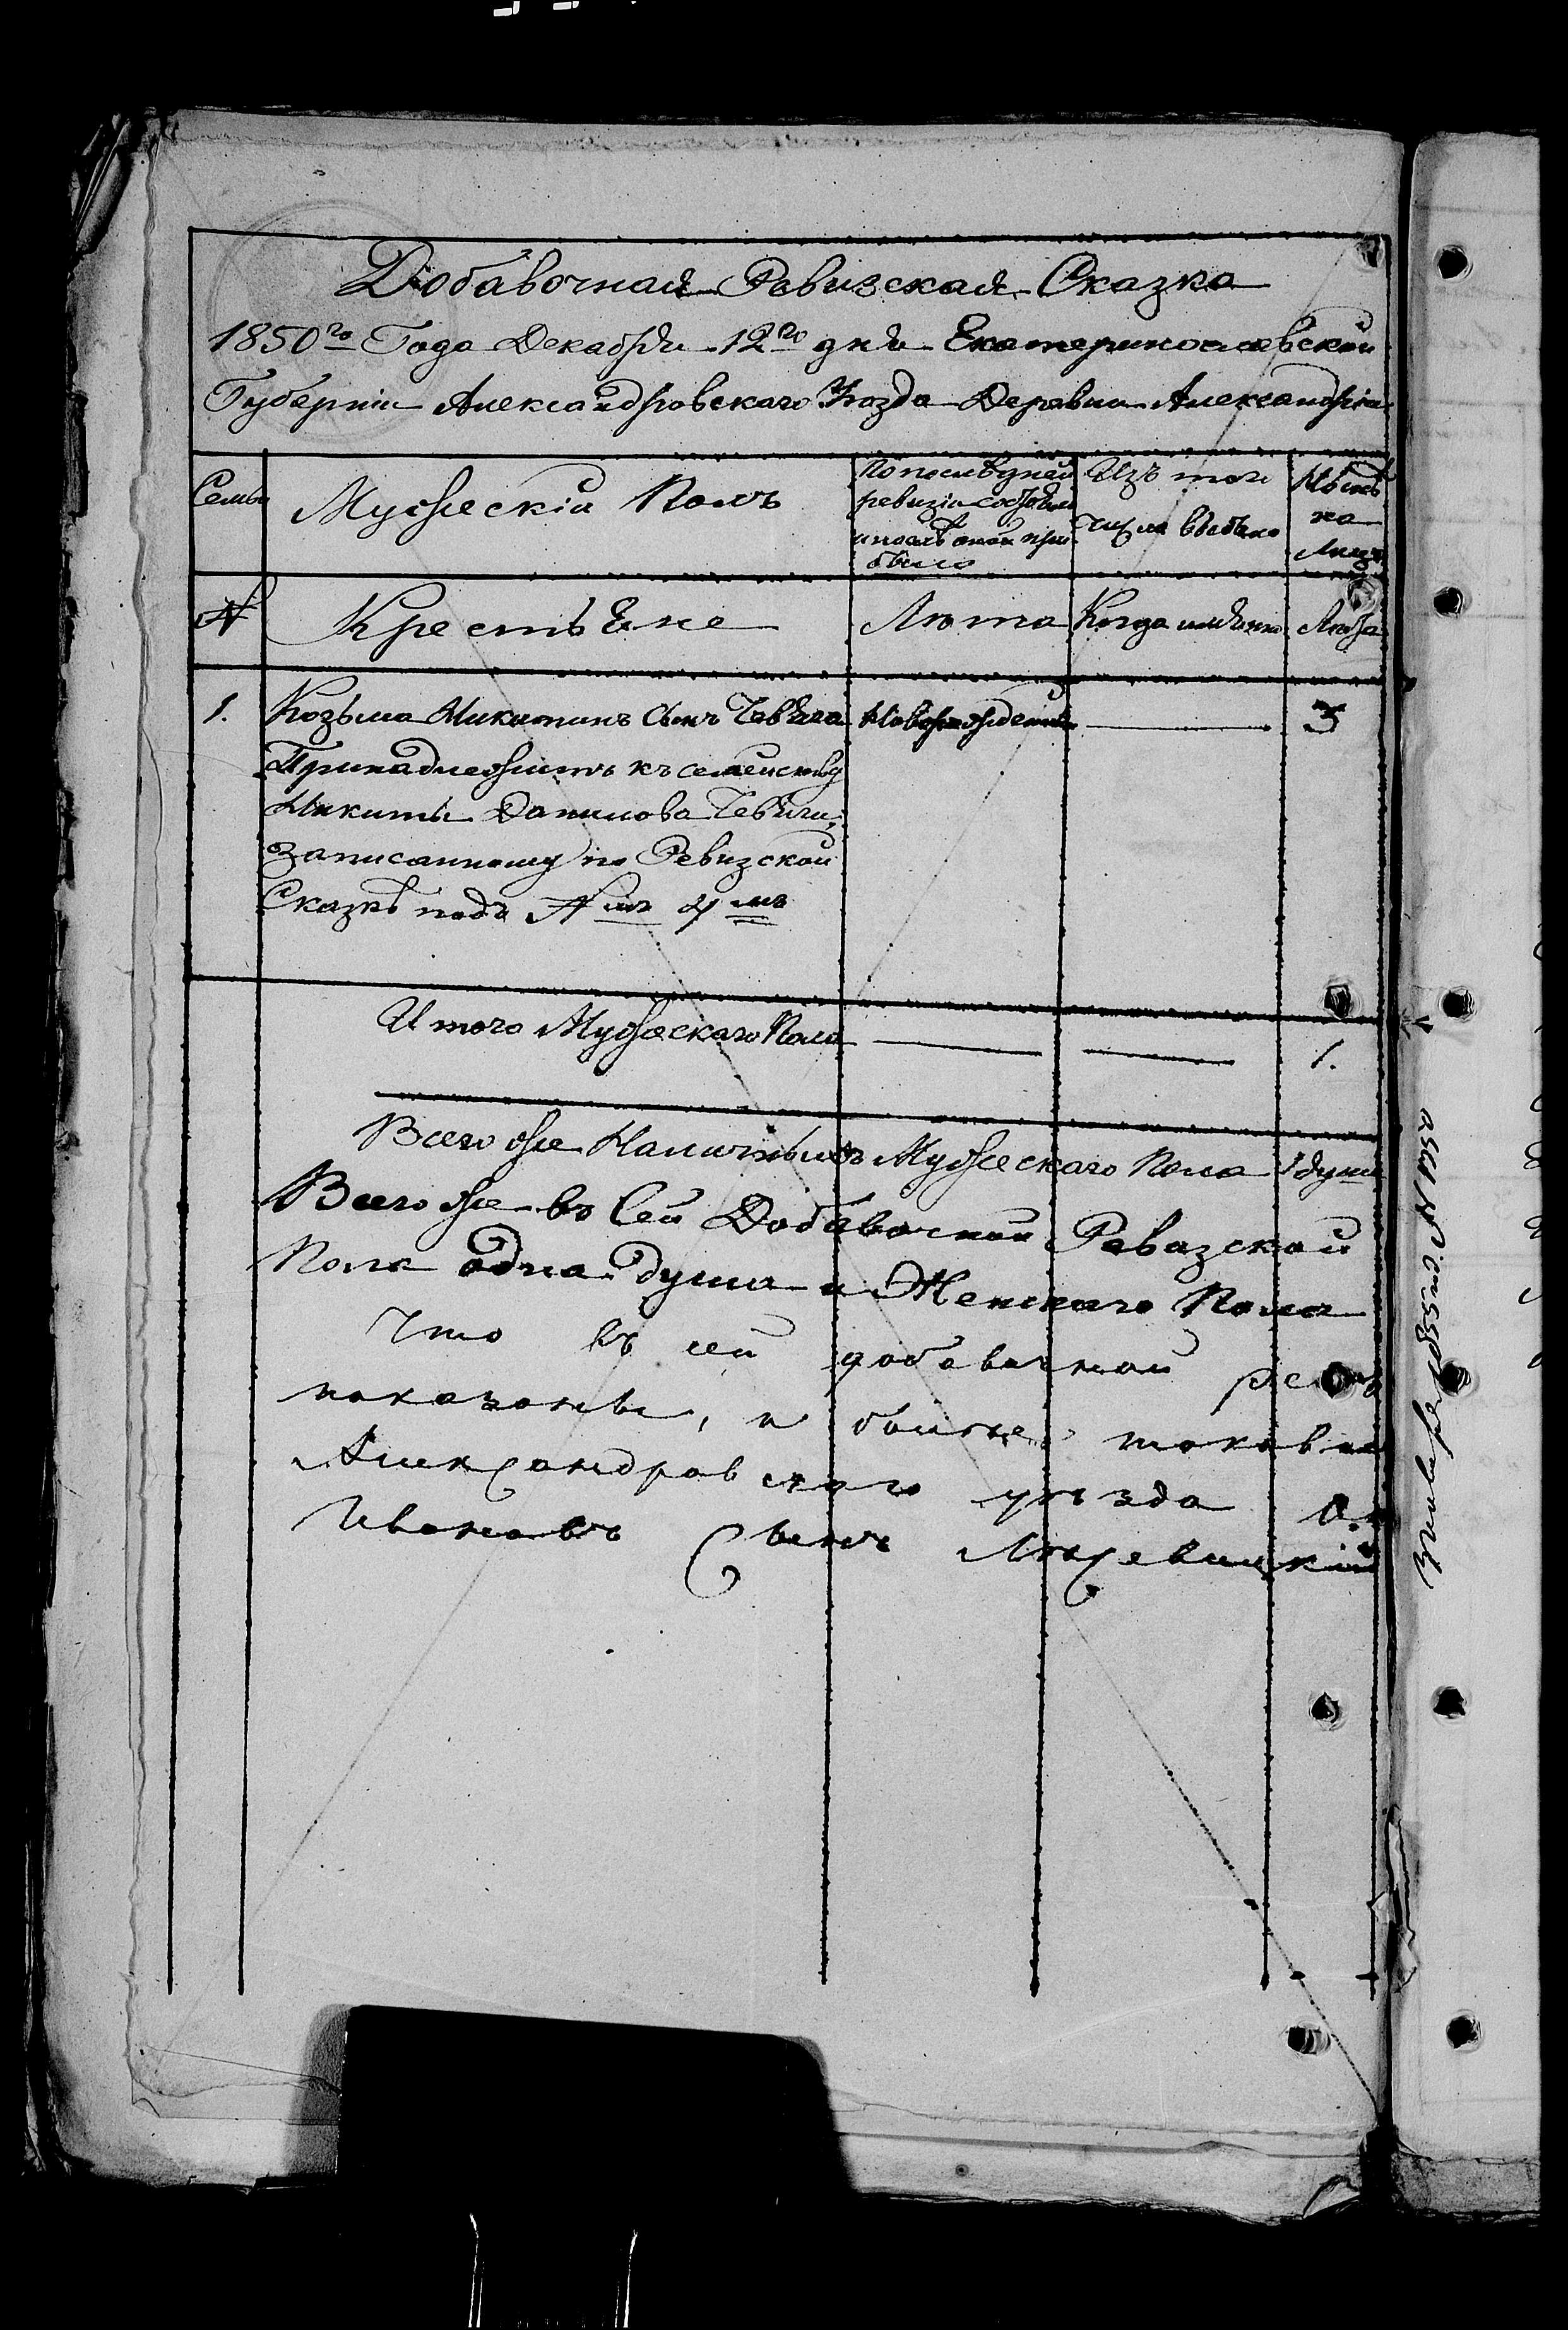 Добавочная Ревизская Сказка
1850го Года Декабря 12го дня Екатеринославской
Губерніи Александровскаго Уѣзда Деревни Александрiи
Семьи
Мужескій Полъ
По послѣдней
ревизіи состояло
и послѣ оной при
было
Изъ того
числа выбыло
Нынѣ
на
Лицо
№
Крестьяне
Лѣта
Когда имянно
Лѣта
1.
Козьма Никитинъ Сынъ
Принадлежитъ къ семейству
Никиты Данилова
записанному по Ревизской
Сказкѣ подъ № мъ 4 мъ
Новорожденный
3
Итого Мужескаго Пола
1.
Всего же Наличныхъ Мужескаго Пола 1 душа
Всего же въ Сей Добавочной Ревизской
Пола одна душа и Женскаго Пола
Что въ сей добавочной
показаны, и
Александровскаго уѣзда
Ивановъ Сынъ